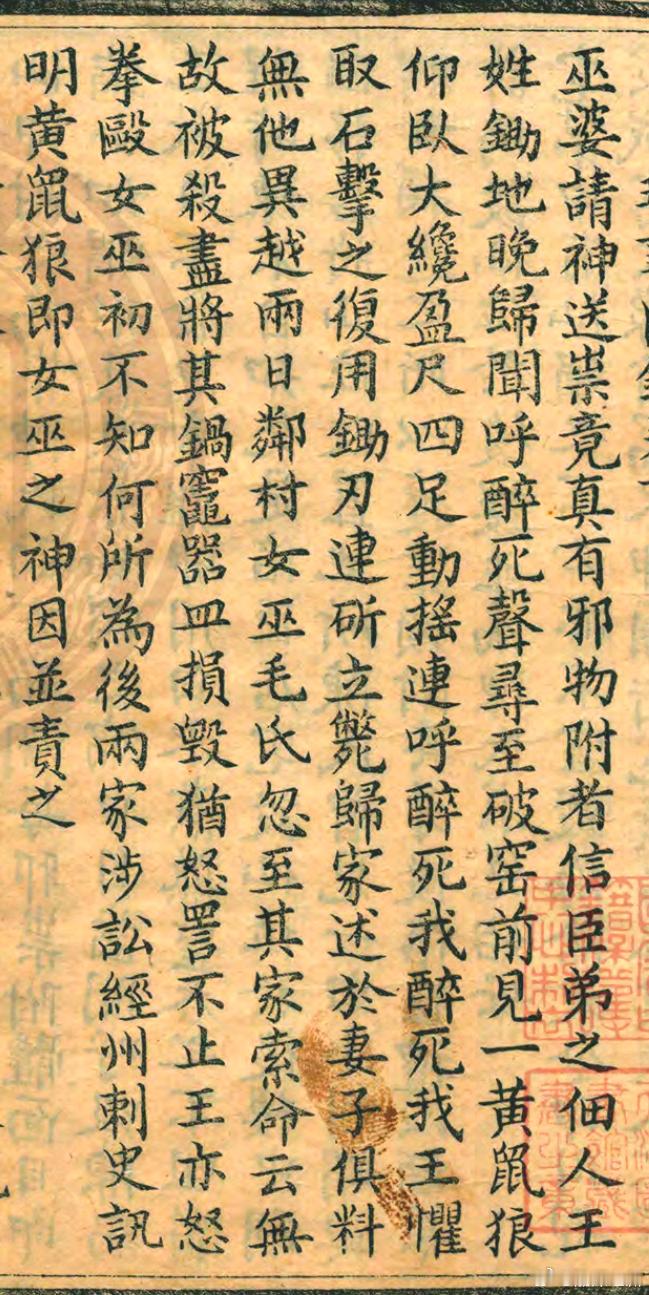 巫婆請神送祟竟真有邪物附者信臣弟之佃人王
姓鋤地晚歸聞呼醉死聲尋至破窑前見一黄鼠狼
仰臥大纔盈尺四足動摇連呼醉死我醉死我王懼
取石擊之復用鋤刃連斫立斃歸家述於妻子俱料
無他異越兩日鄰村女巫毛氏忽至其家索命云無
故被殺盡將其鍋竈器皿損毁猶怒詈不止王亦怒
拳毆女巫初不知何所為後兩家涉訟經州刺史訊
明黄鼠狼即女巫之神因並責之